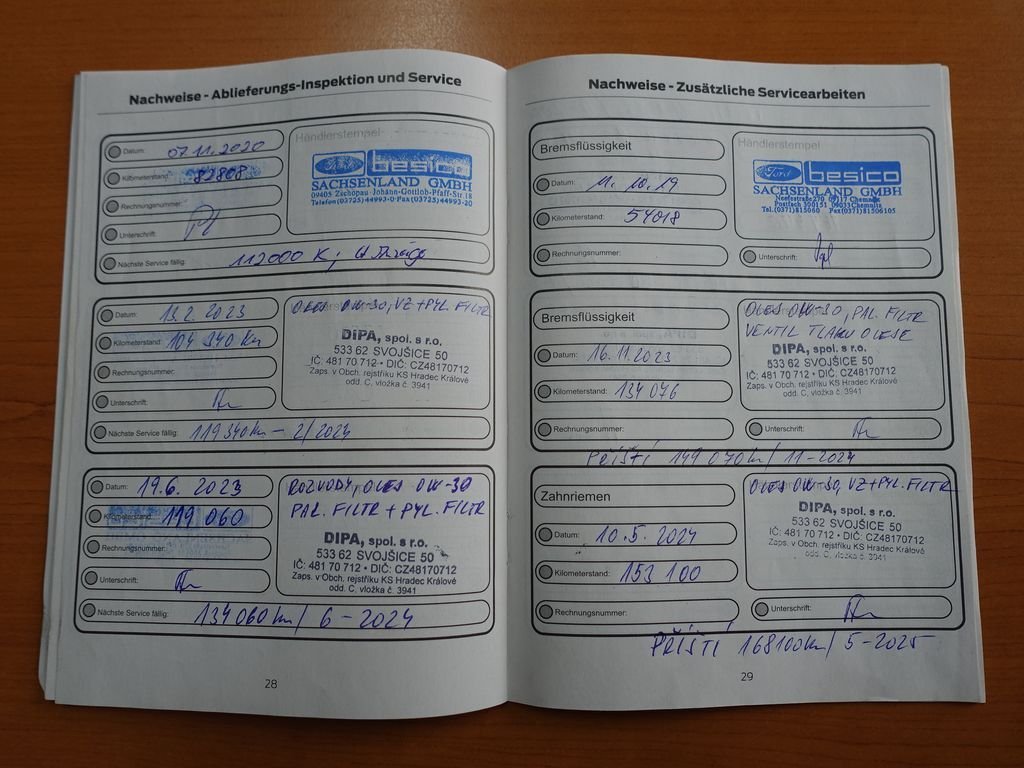 Nachweise - Ablieferungs-Inspektion und Service
Datum: 07.11.2020
Kilometerstand: 82808
Rechnungsnummer:
Unterschrift:
Nächste Service fällig: 112000 K;
Händlerstempel
Ford besico
SACHSENLAND GMBH
09405 Zschopau Johann-Gottlob-Pfaff-Str.18
Telefon(03725)44993-0·Fax(03725)44993-20
Datum: 13.2. 2023
Kilometerstand: 104 340 Km
Rechnungsnummer:
Unterschrift:
Nächste Service fällig: 119340km - 2/2024
OLEJ 0W-30, VZ+PYL. FILTR
DIPA, spol. s r.o.
533 62 SVOJŠICE 50
IČ: 481 70 712 • DIČ: CZ48170712
Zaps. v Obch. rejstříku KS Hradec Králové
odd. C, vložka č. 3941
Datum: 19.6. 2023
Kilometerstand: 119 060
Rechnungsnummer:
Unterschrift:
Nächste Service fällig: 134060km/ 6-2024
ROZVODY, OLEJ 0W-30
PAL. FILTR + PYL. FILTR
DIPA, spol. s r.o.
533 62 SVOJŠICE 50
IČ: 481 70 712 • DIČ: CZ48170712
Zaps. v Obch. rejstříku KS Hradec Králové
odd. C, vložka č. 3941
28
Nachweise - Zusätzliche Servicearbeiten
Bremsflüssigkeit
Datum: 11. 10. 19
Kilometerstand: 54018
Rechnungsnummer:
Händlerstempel
Ford besico
SACHSENLAND GMBH
Neefestraße270 09117 Chemnitz
Postfach 300151 09033Chemnitz
Tel.(0371)815060 Fax(0371)81506105
Unterschrift:
Bremsflüssigkeit
Datum: 16.11.2023
Kilometerstand: 134 076
Rechnungsnummer:
OLEJ 0W-30, PAL. FILTR
VENTIL TLAKU OLEJE
DIPA, spol. s r.o.
533 62 SVOJŠICE 50
IČ: 481 70 712 • DIČ: CZ48170712
Zaps. v Obch. rejstříku KS Hradec Králové
odd. C, vložka č. 3941
Unterschrift:
PŘÍŠTÍ 149 070km/ 11-2024
Zahnriemen
Datum: 10.5. 2024
Kilometerstand: 153 100
Rechnungsnummer:
OLEJ 0W-30, VZ+PYL. FILTR
DIPA, spol. s r.o.
533 62 SVOJŠICE 50
IČ: 481 70 712 • DIČ: CZ48170712
Zaps. v Obch. rejstříku KS Hradec Králové
odd. C, vložka č. 3941
Unterschrift:
PŘÍŠTÍ 168100km/ 5-2025
29